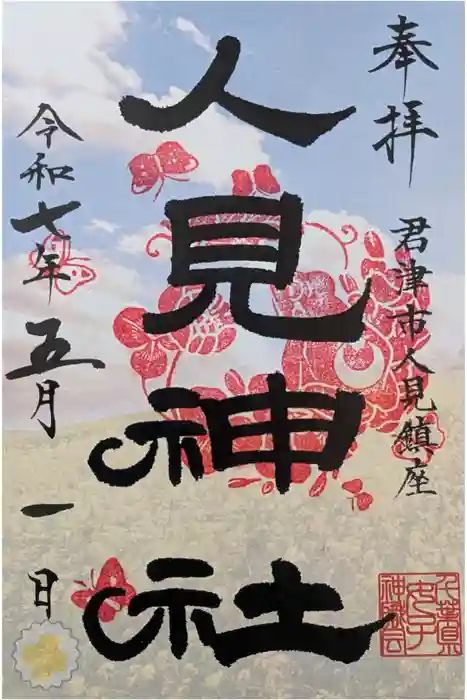 奉拝
君津市人見鎮座
人見神社
令和七年五月一日